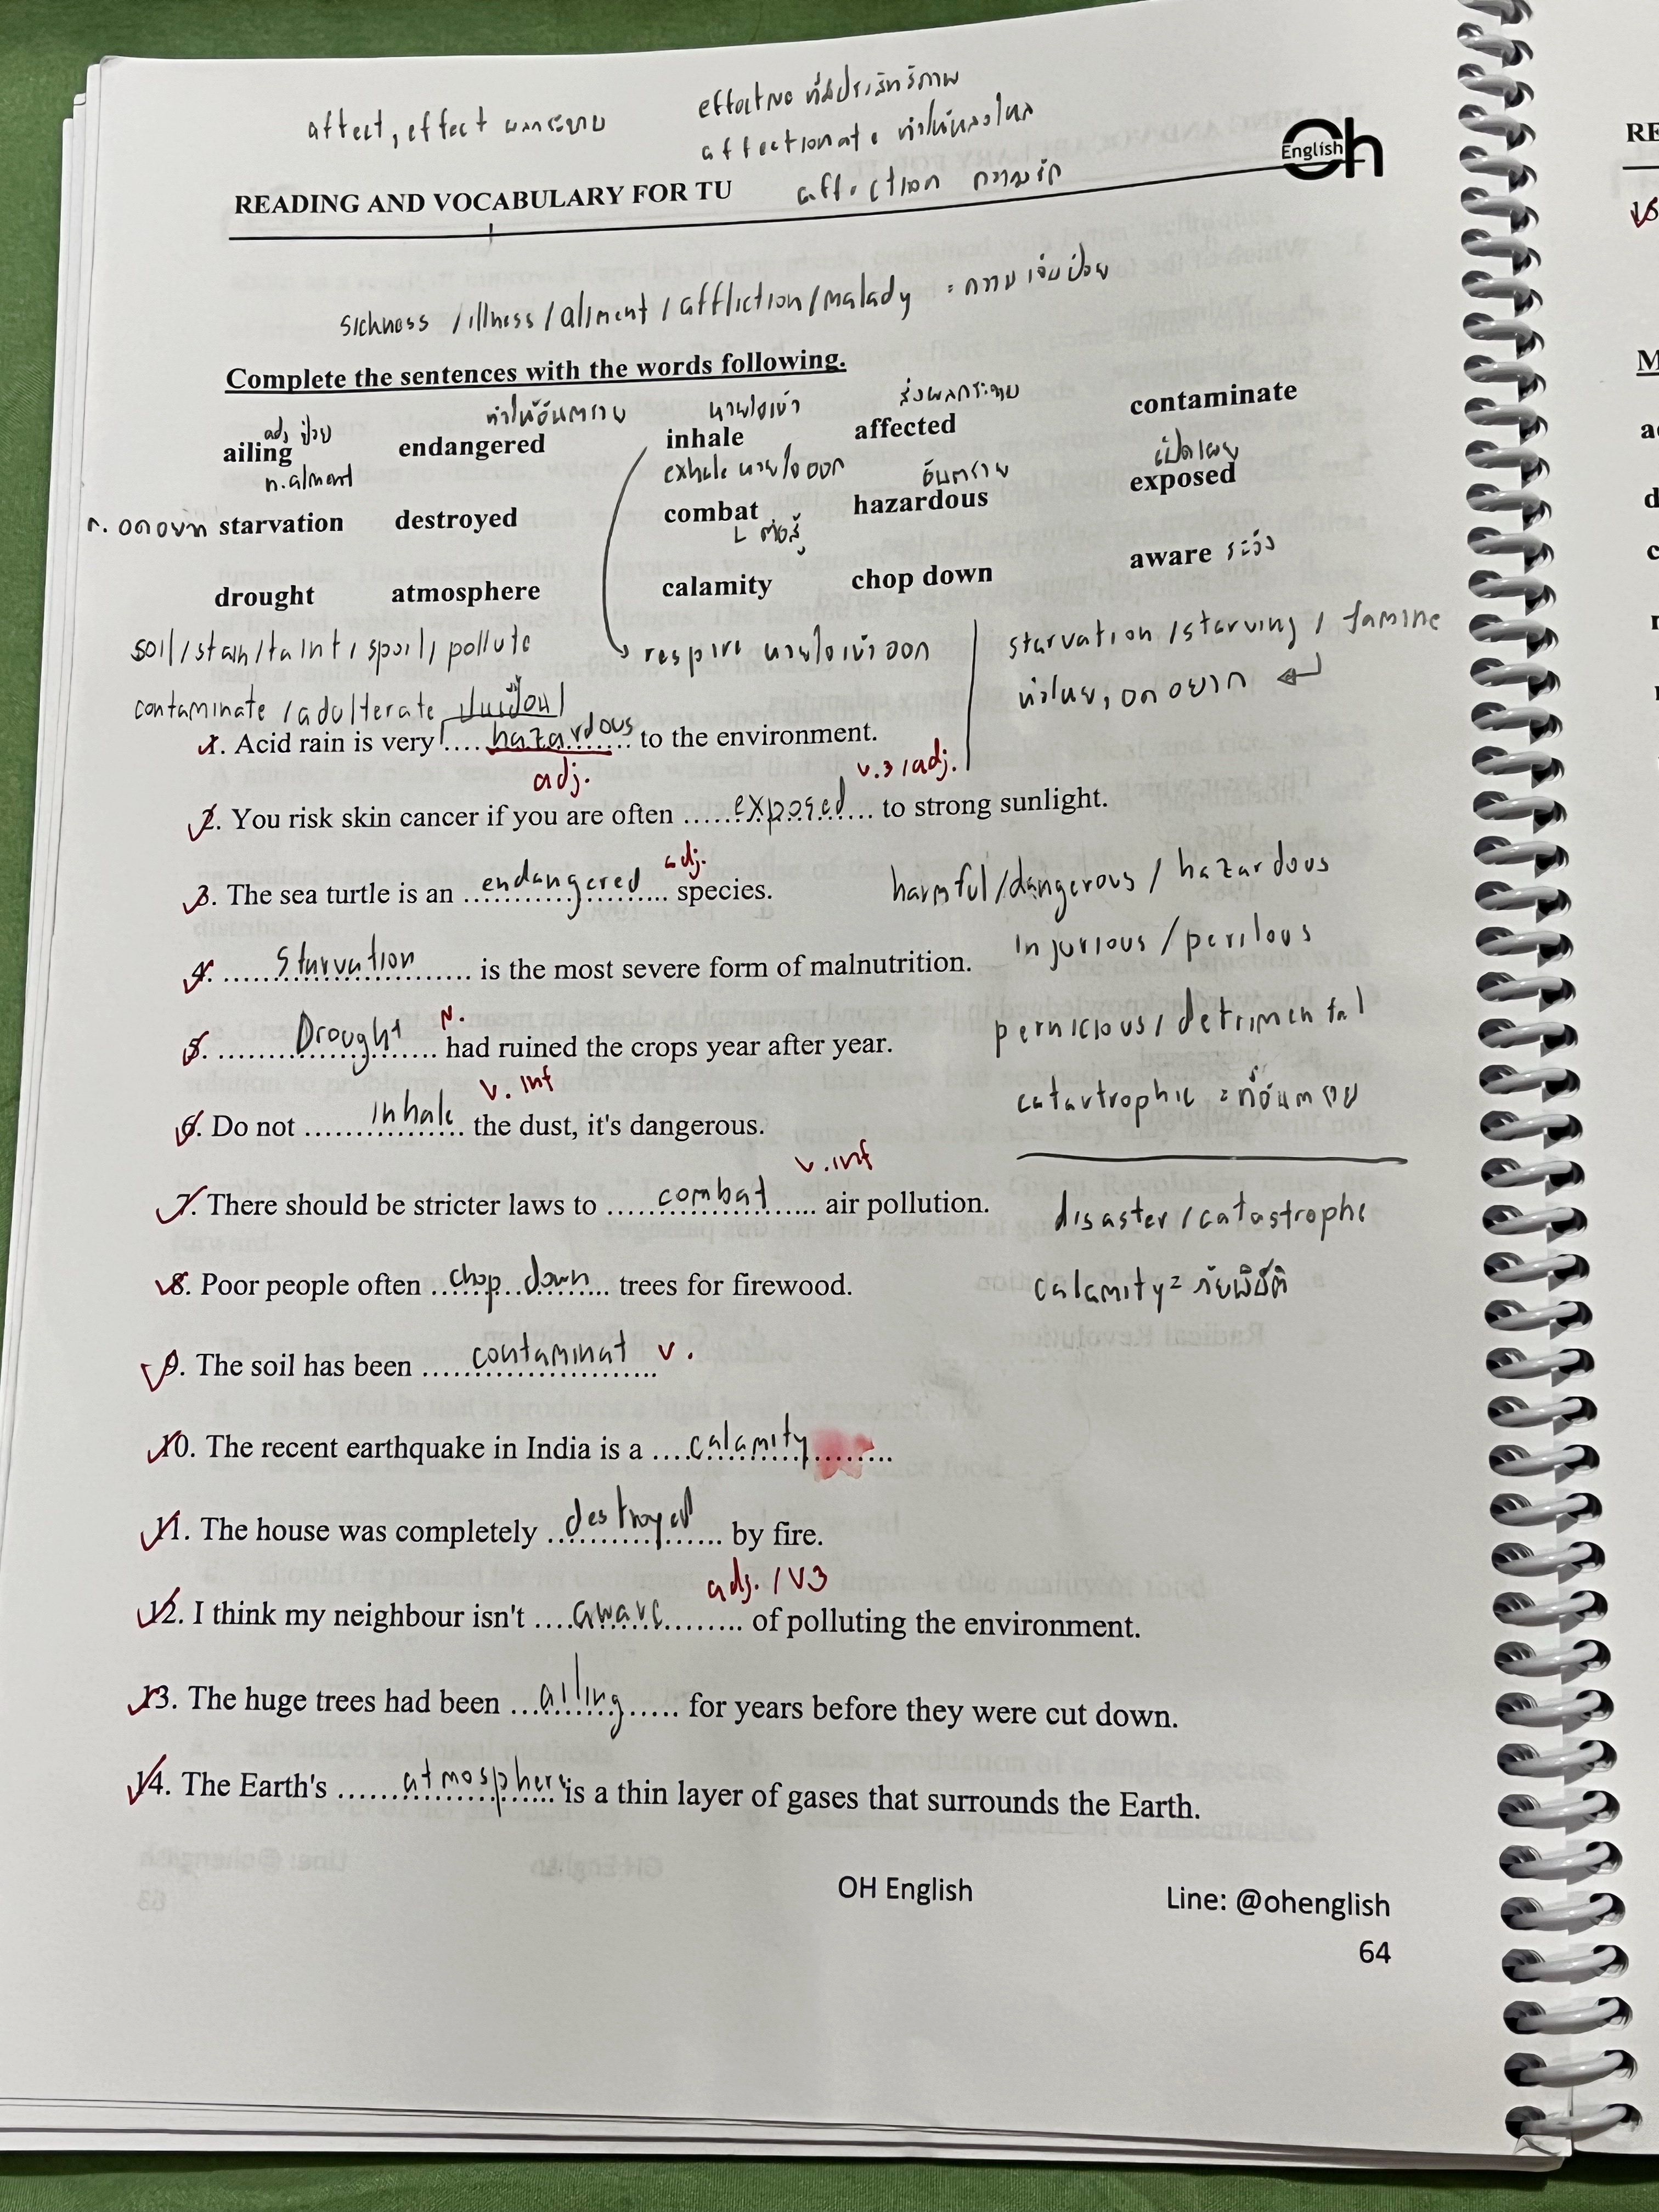 affect, effect ผลกระทบ
effective ที่มีประสิทธิภาพ
affectionate ทำให้หลงใหล
affection ความรัก
English Oh
READING AND VOCABULARY FOR TU
sickness / illness / ailment / affliction / malady = ความเจ็บป่วย
Complete the sentences with the words following.
adj ป่วย ทำให้อันตราย หายใจเข้า ส่งผลกระทบ
ailing endangered inhale affected contaminate
n. alment exhale หายใจออก อันตราย เปิดเผย
n. อดอยาก starvation destroyed combat hazardous exposed
ต่อสู้
drought atmosphere calamity chop down aware ระวัง
soil / stain / taint / spoil / pollute
respire หายใจเข้าออก
starvation / starving / famine
หิวโหย, อดอยาก
contaminate / adulterate ปนเปื้อน
1. Acid rain is very .... hazardous .... to the environment.
adj.
v.3 / adj.
2. You risk skin cancer if you are often ..... exposed .... to strong sunlight.
adj.
3. The sea turtle is an ... endangered ... species.
harmful / dangerous / hazardous
4. ..... Starvation ..... is the most severe form of malnutrition.
injurious / perilous
5. ..... Drought ..... had ruined the crops year after year.
N.
pernicious / detrimental
v. inf
6. Do not ..... inhale ..... the dust, it's dangerous.
catartrophic = ที่อันตราย
v. inf
7. There should be stricter laws to ..... combat ..... air pollution.
disaster / catastrophe
8. Poor people often ... chop down ... trees for firewood.
calamity = ภัยพิบัติ
9. The soil has been ..... contaminat ..... v.
10. The recent earthquake in India is a .... calamity ........
11. The house was completely ... destroyed ... by fire.
adj. / V3
12. I think my neighbour isn't .... aware ........ of polluting the environment.
13. The huge trees had been ... ailing ..... for years before they were cut down.
14. The Earth's ...... atmosphere is a thin layer of gases that surrounds the Earth.
OH English Line: @ohenglish
64
RE
M